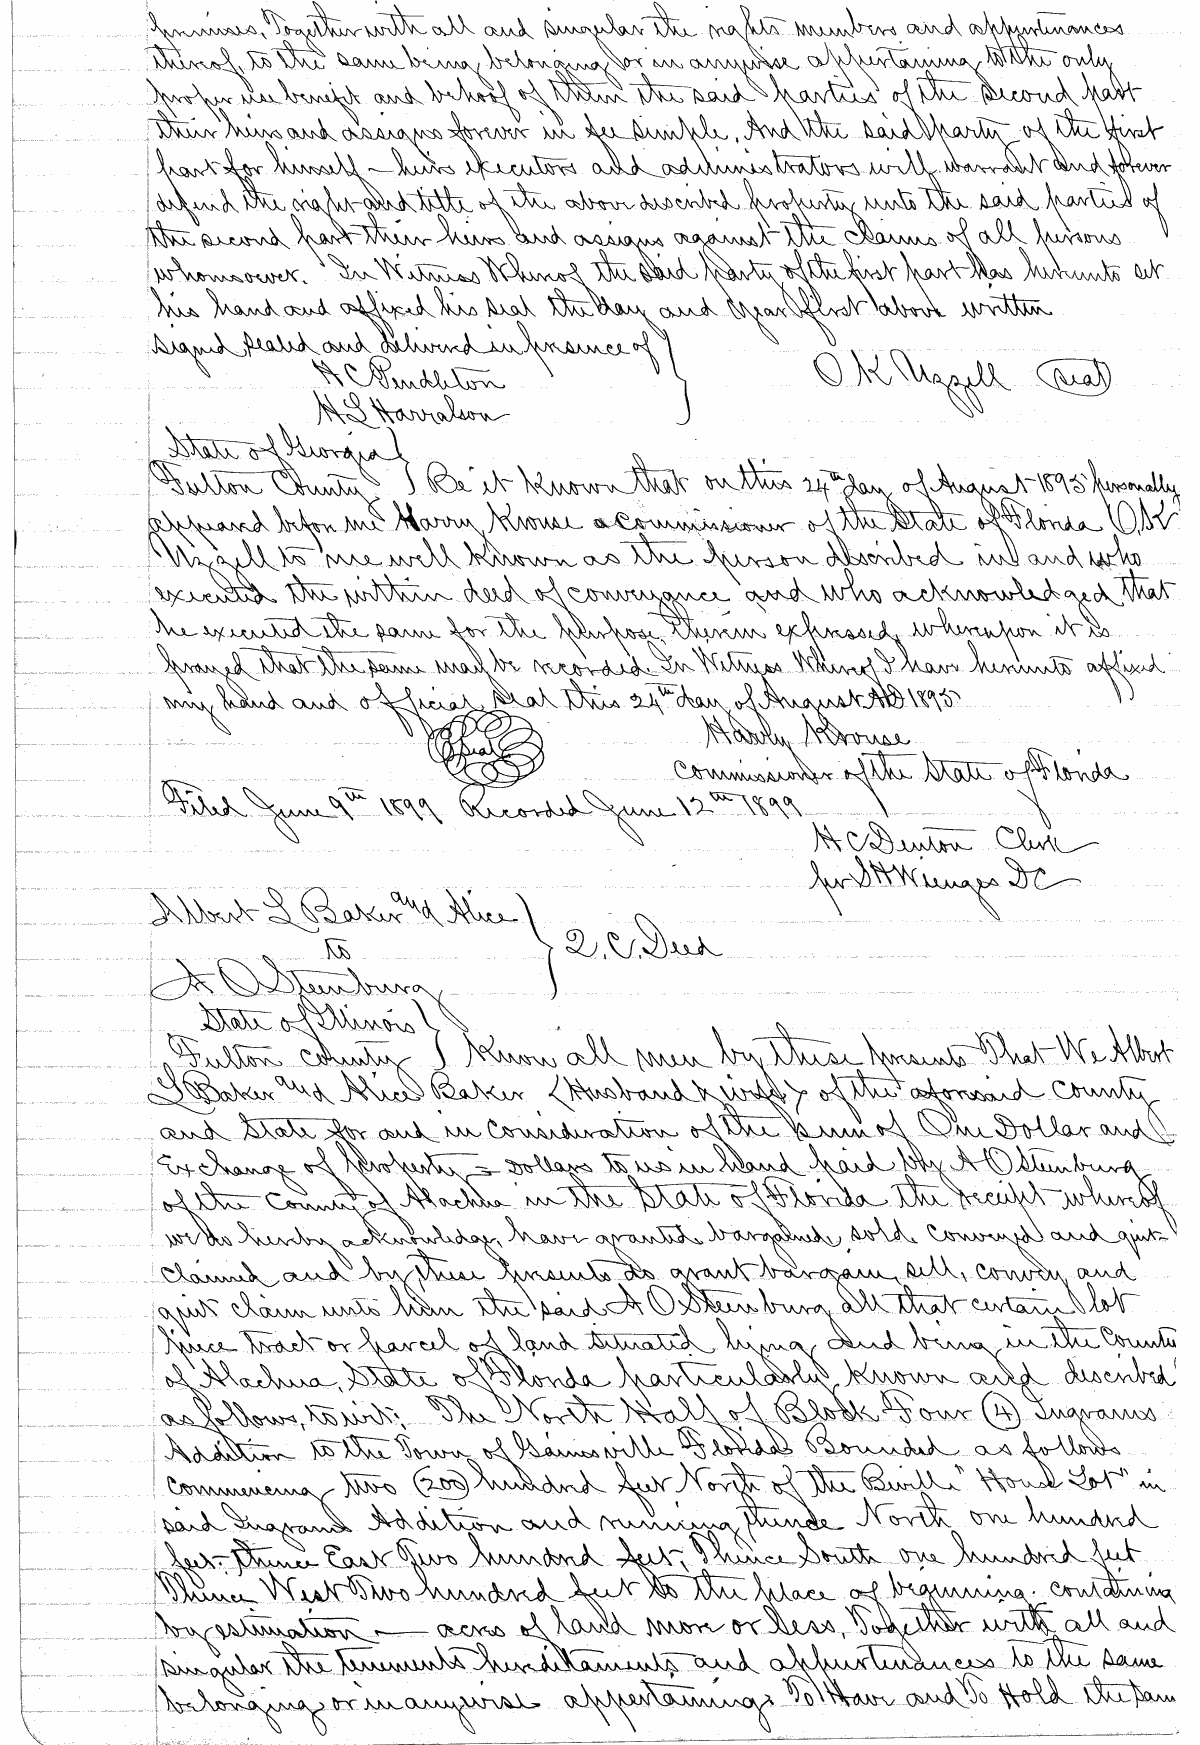 premises, Together with all and singular the rights members and appurtenances
thereof, to the same being, belonging or in anywise appertaining, to the only
proper use benefit and behoof of them the said parties of the second part
their heirs and assigns forever in fee simple, And the said party of the first
part for himself — heirs executors and administrators will warrant and forever
defend the right and title of the above described property unto the said parties of
the second part their heirs and assigns against the claims of all persons
whomsoever. In Witness Whereof the said party of the first part has hereunto set
his hand and affixed his seal the day and year first above written
signed sealed and delivered in presence of
H C Pendleton
O K Uzzell (seal)
H L Harralson
State of Georgia
Fulton County } Be it known that on this 24th day of August 1895 personally
appeared before me Harry Krouse a commissioner of the State of Florida O.K
Uzzell to me well known as the person described in and who
executed the within deed of conveyance and who acknowledged that
he executed the same for the purpose therein expressed, whereupon it is
prayed that the same may be recorded. In Witness Whereof I have hereunto affixed
my hand and official seal this 24th day of August AD 1895
(Seal) Harry Krouse
commissioner of the State of Florida
Filed June 9th 1899 Recorded June 12th 1899
H C Denton Clerk
per S H Wienges DC
Albert L Baker and Alice
to } Q. C. Deed
A O Steenburg
State of Illinois
Fulton county } Know all men by these presents That We Albert
L Baker and Alice Baker (Husband & wife) of the aforesaid County
and State for and in consideration of the sum of One Dollar and
Exchange of Property = Dollars to us in hand paid by A O Steenburg
of the County of Alachua in the State of Florida the receipt whereof
we do hereby acknowledge, have granted, bargained, sold, conveyed and quit-
claimed and by these presents do grant bargain, sell, convey and
quit claim unto him the said A O Steenburg all that certain lot
piece tract or parcel of land situated lying and being in the County
of Alachua, State of Florida particularly known and described
as follows, to wit; The North Half of Block Four (4) Ingrams
Addition to the Town of Gainsville Florida Bounded as follows
commencing two (200) hundred feet North of the Beville "House Lot" in
said Ingrams Addition and running thence North one hundred
feet, thence East Two hundred feet, Thence South one hundred feet
Thence West Two hundred feet to the place of beginning. containing
by estimation — acres of land more or less, Together with all and
singular the tenements hereditaments and appurtenances to the same
belonging or in anywise appertaining. To Have and To Hold the same